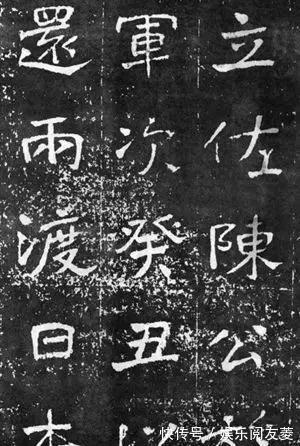 立佐陳公
軍次癸丑以
還兩渡日本
快传号/娱乐阅友菱